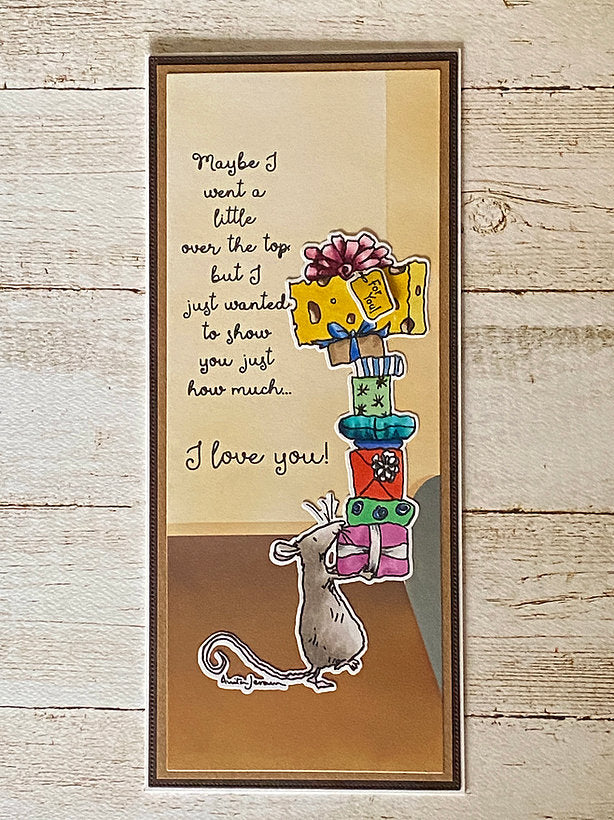 Maybe I
went a
little
over the top
but I
just wanted
to show
you just
how much...
I love you!
For
You!
Anita Jeram